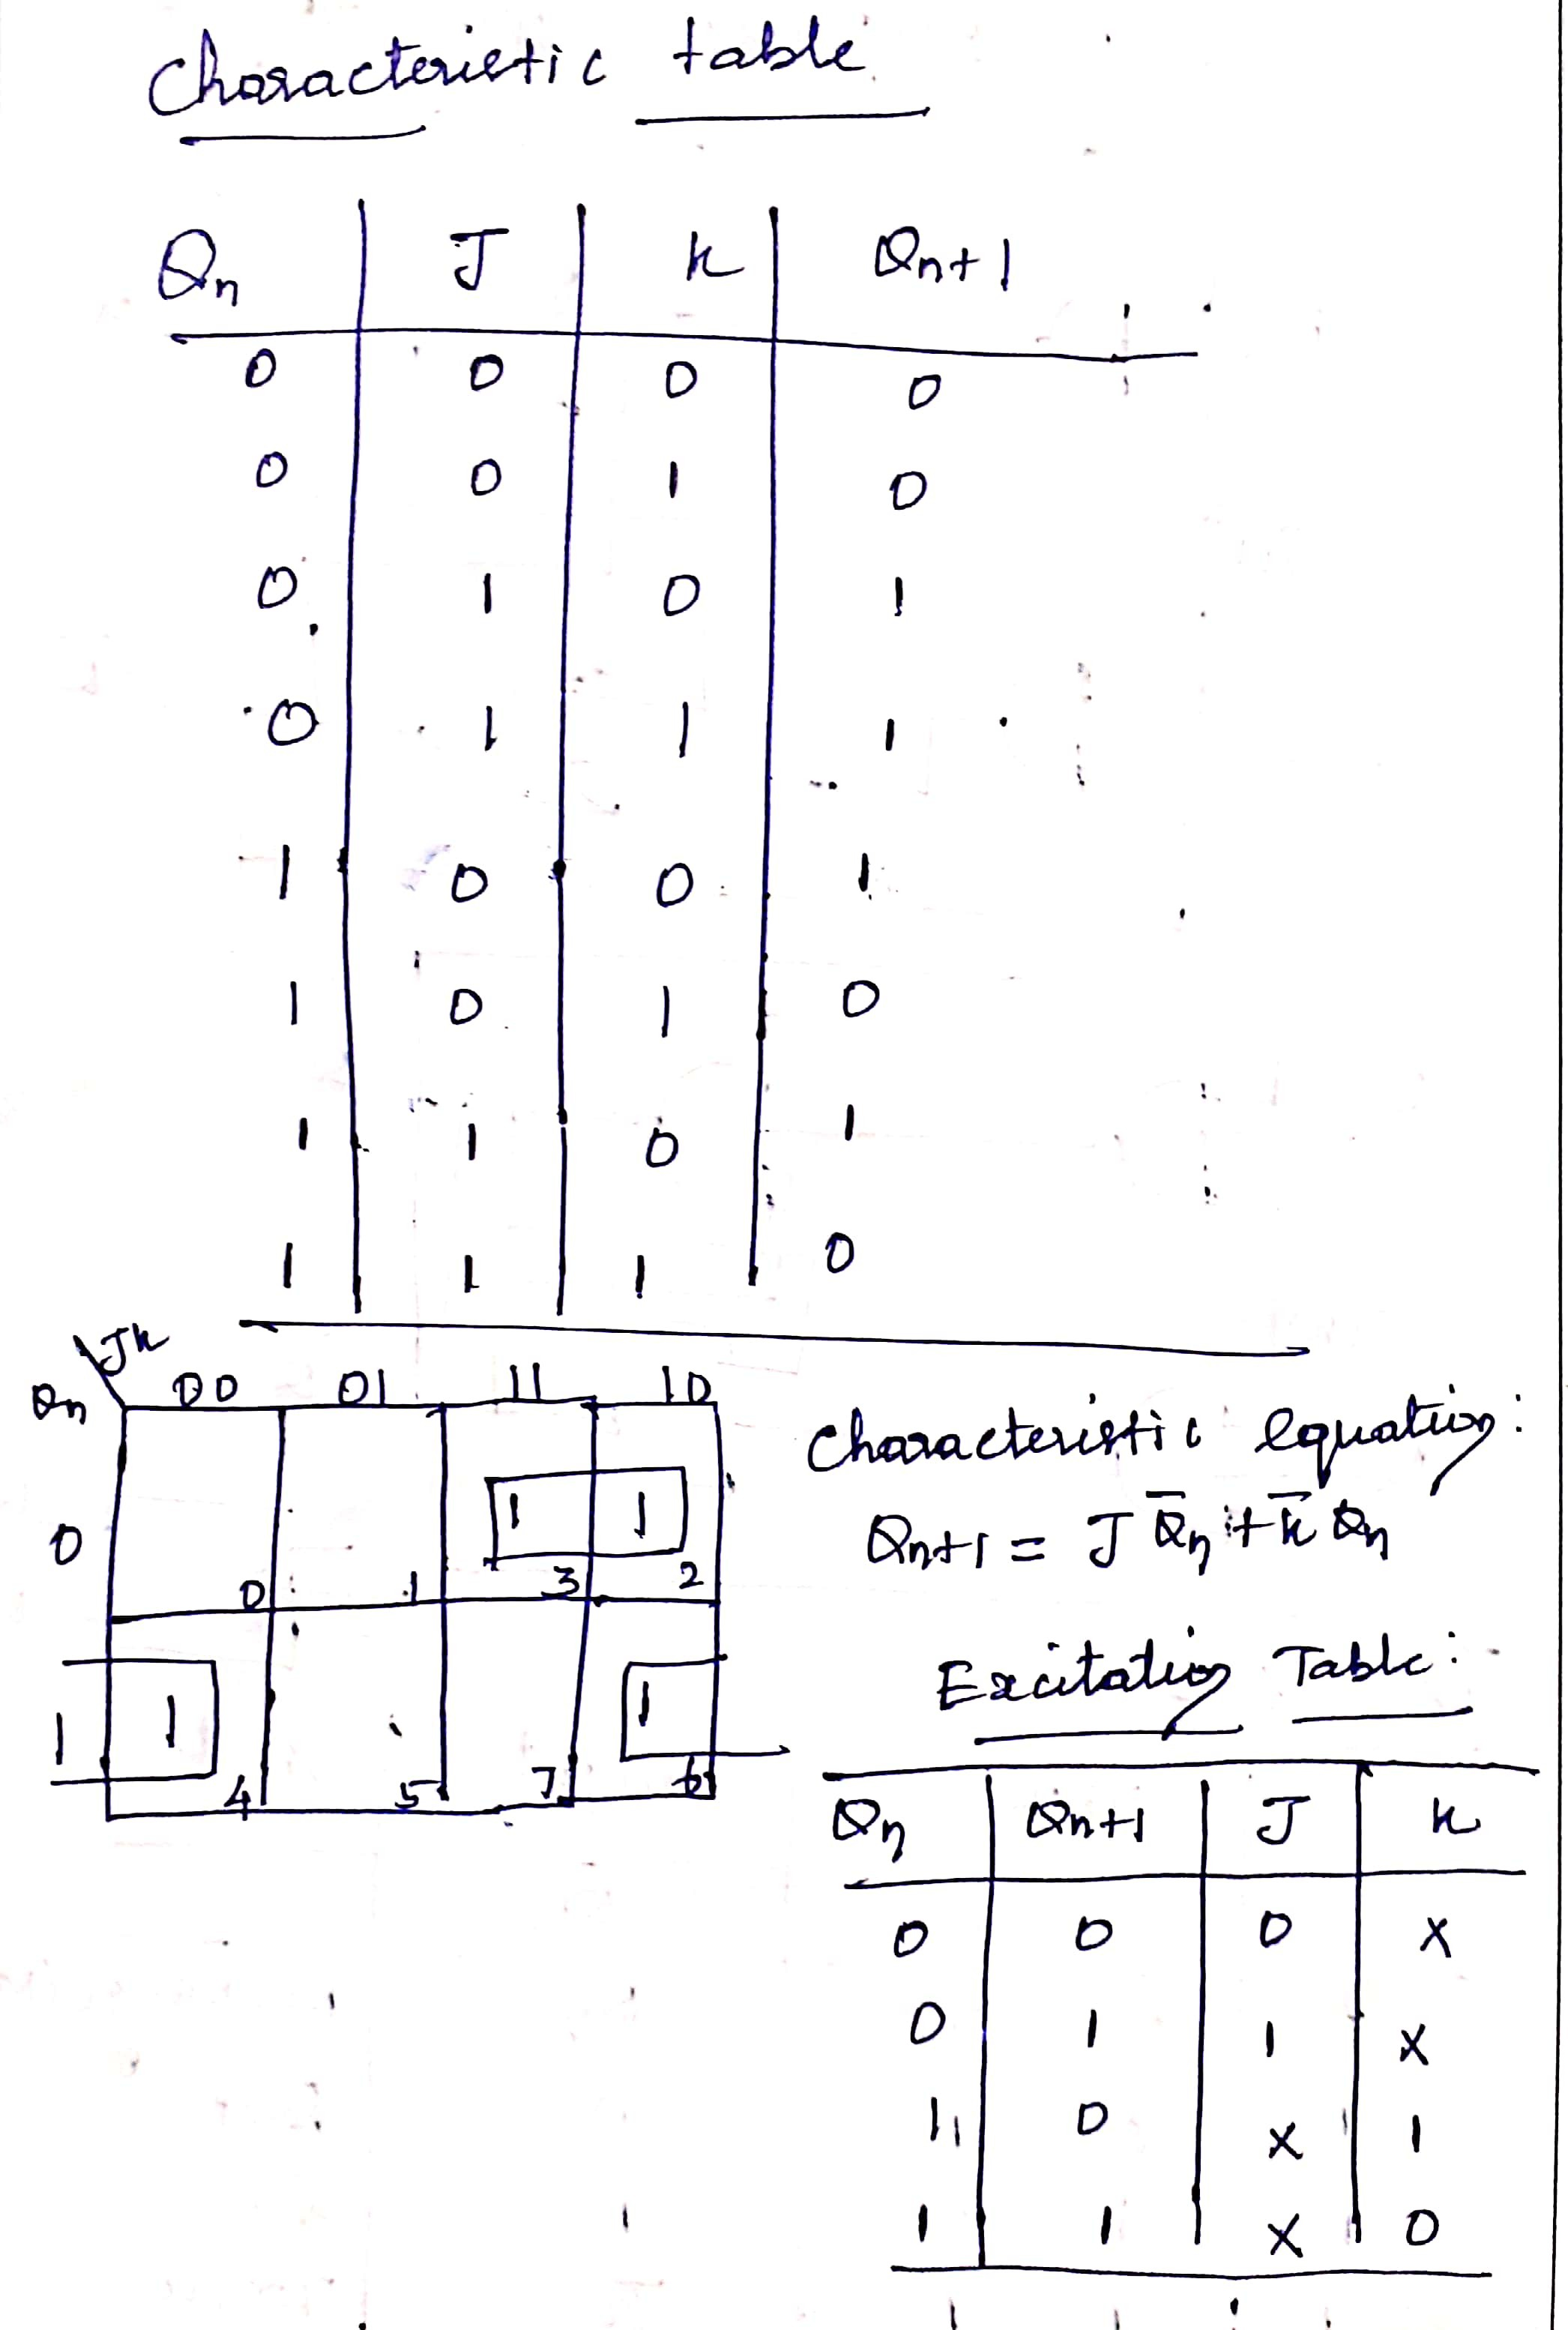 Characteristic table
Qn J K Qn+1
0 0 0 0
0 0 1 0
0 1 0 1
0 1 1 1
1 0 0 1
1 0 1 0
1 1 0 1
1 1 1 0
JK
Qn 00 01 11 10
0 1 1
0 1 3 2
1 1 1
4 5 7 6
Characteristic equation:
Qn+1 = J Q̅n + K̅ Qn
Excitation Table:
Qn Qn+1 J K
0 0 0 X
0 1 1 X
1 0 X 1
1 1 X 0